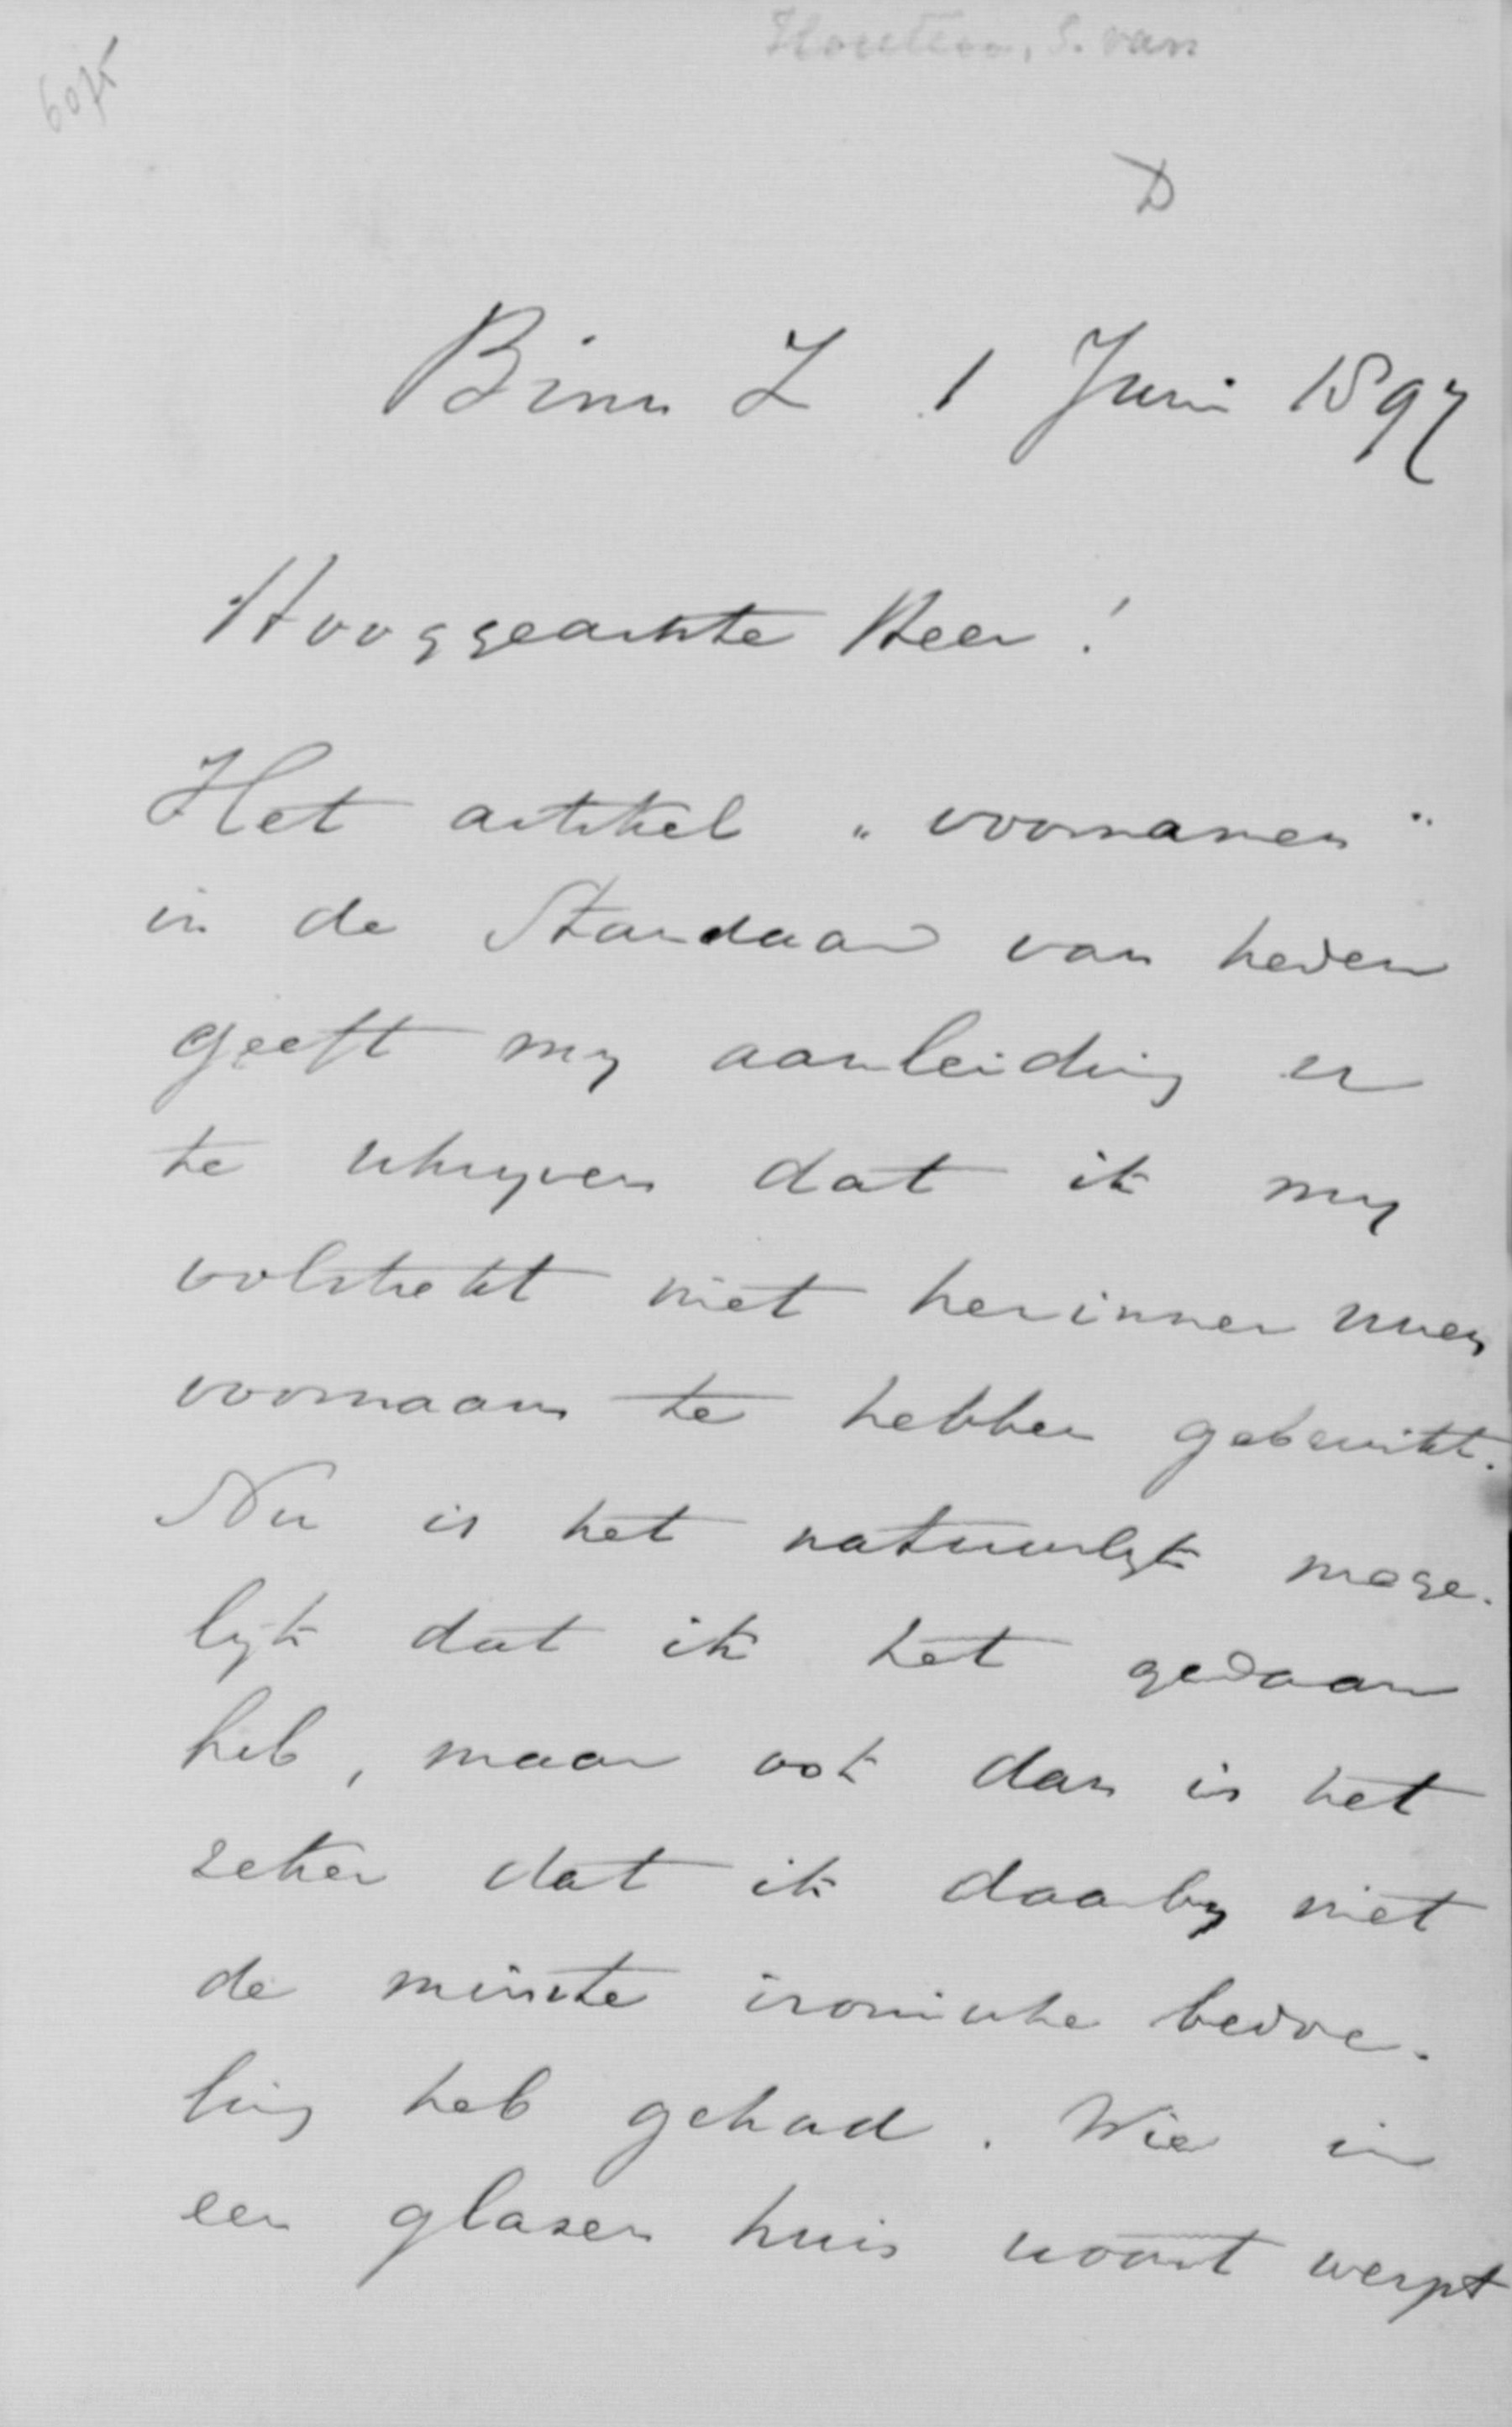 Houten, S. van
6075
D
Binn Z 1 Juni 1897
Hooggeachte Heer!
Het artikel „voornamen"
in de Standaard van heden
geeft my aanleiding U
te schryven dat ik my
volstrekt niet herinner uwen
voornaam te hebben gebruikt.
Nu is het natuurlyk moge-
lyk dat ik het gedaan
heb, maar ook dan is het
zeker dat ik daarby niet
de minste ironische bedoe-
ling heb gehad. Wie in
een glazen huis woont werpt